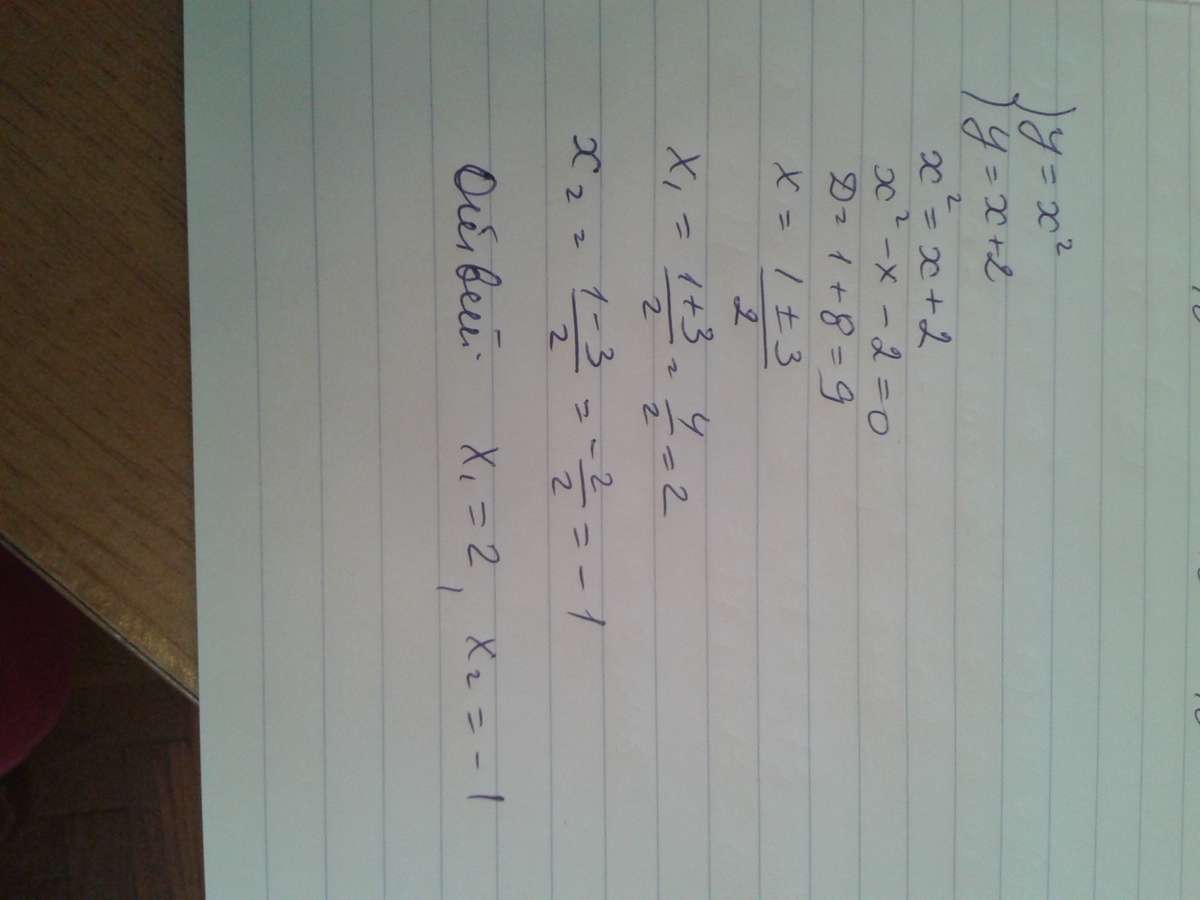 { y = x²
{ y = x+2
x² = x + 2
x² - x - 2 = 0
D = 1 + 8 = 9
x = (1 ± 3)/2
x₁ = (1+3)/2 = 4/2 = 2
x₂ = (1-3)/2 = -2/2 = -1
Ответ. x₁ = 2, x₂ = -1